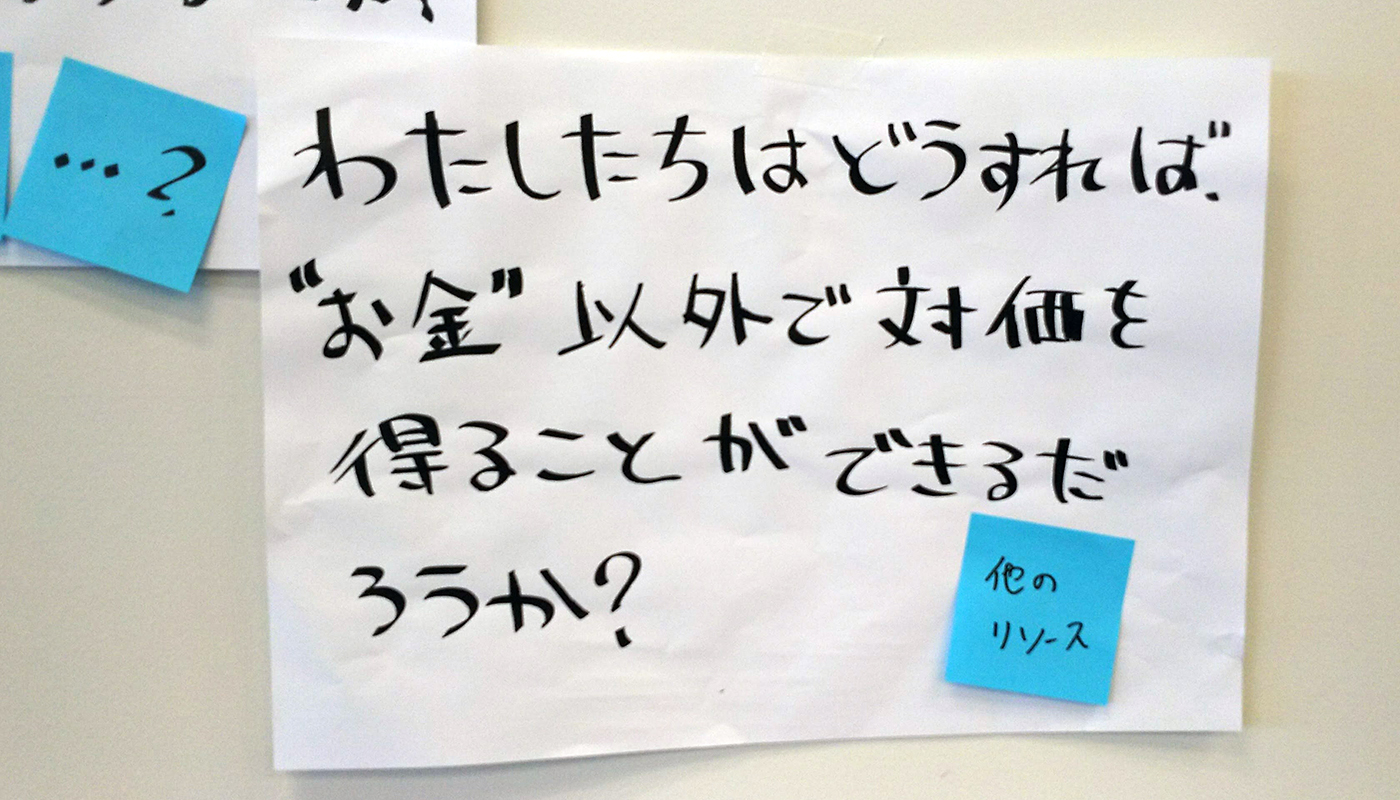 …?
わたしたちはどうすれば、
“お金” 以外で対価を
得ることができるだ
ろうか?
他の
リソース